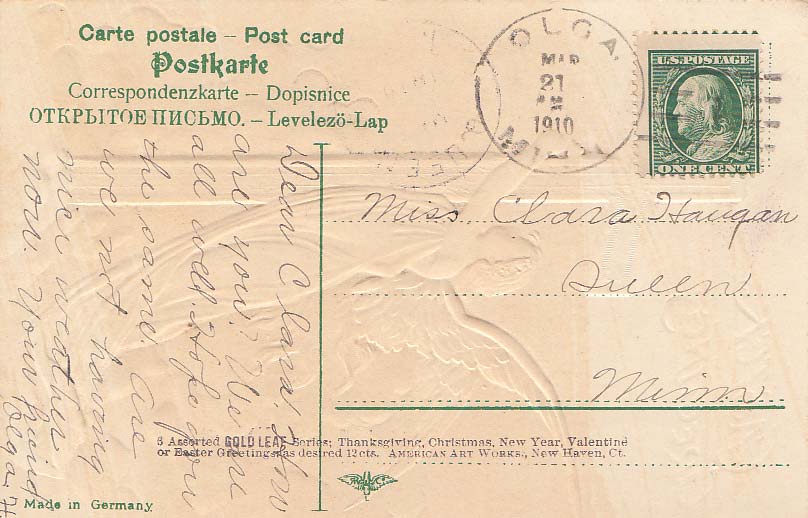 Carte postale – Post card
Postkarte
Correspondenzkarte – Dopisnice
ОТКРЫТОЕ ПИСЬМО. – Levelező-Lap
OLGA.
MAR
21
1910
MINN
QUEEN
U.S. POSTAGE
ONE CENT
Dear Clara! How
are you? We are
all well. Hope you
the same. Are
we not having
nice weather
now. Your friend
Olga. H.
Miss. Clara Haugan
Queen
Minn
6 Assorted GOLD LEAF Series; Thanksgiving, Christmas, New Year, Valentine
or Easter Greetings as desired 12cts. AMERICAN ART WORKS., New Haven, Ct.
Made in Germany